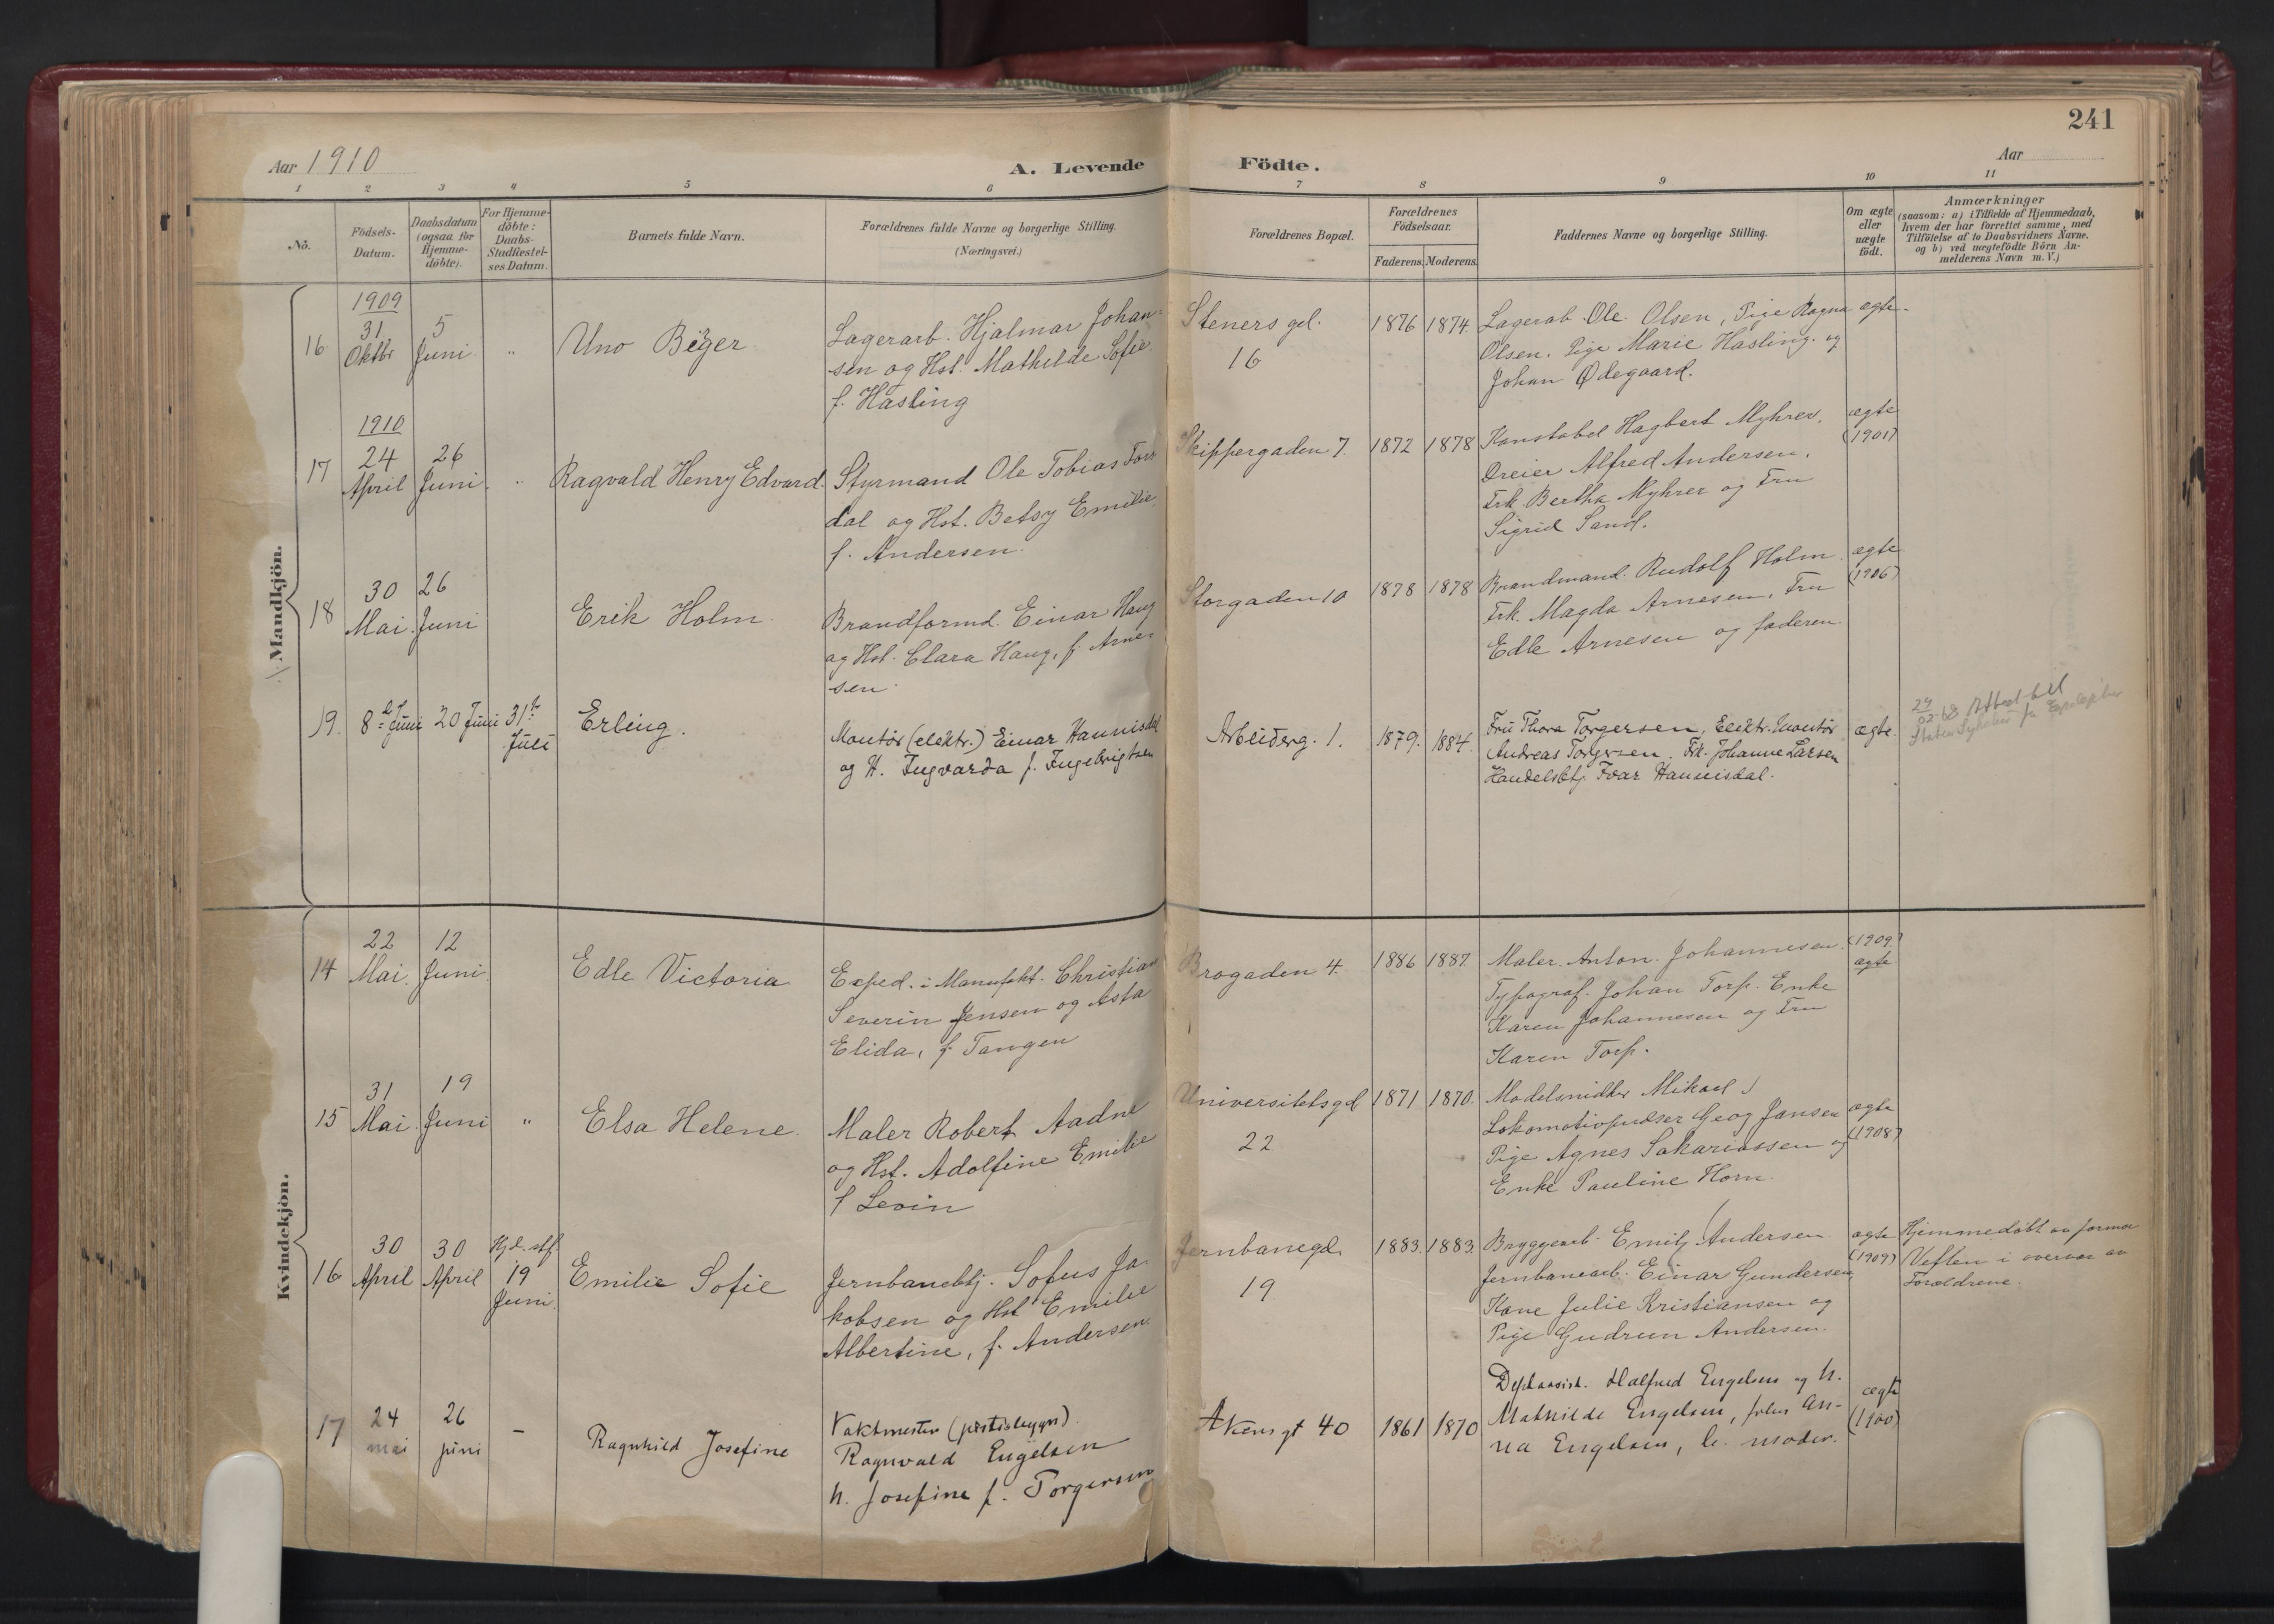 241
Aar 1910
A. Levende Födte.
Aar
1 2 3 4 5 6 7 8 9 10 11
Nö.
Födsels-
Datum.
Daabsdatum
(ogsaa for
Hjemme-
döbte).
For Hjemme-
döbte:
Daabs-
Stadfestel-
ses Datum.
Barnets fulde Navn.
Forældrenes fulde Navne og borgerlige Stilling.
(Næringsvei.)
Forældrenes Bopæl.
Forældrenes
Födselsaar.
Faderens. Moderens.
Faddernes Navne og borgerlige Stilling.
Om ægte
eller
uægte
födt.
Anmærkninger
(saasom: a) i Tilfælde af Hjemmedaab,
hvem der har forrettet samme, med
Tilföielse af to Daabsvidners Navne.
og b) ved uægtefödte Börn An-
melderens Navn m. V.)
Mandkjön.
1909
16 31 Oktbr 5 Juni " Uno Birger
Lagerarb. Hjalmar Johan-
sen og Hst. Mathilde Sofie
f. Hasling
Steners gd.
16
1876 1874
Lagerab. Ole Olsen, Pige Ragna
Olsen. Pige Marie Hasling og
Johan Ødegaard.
ægte
1910
17 24 April 26 Juni " Ragvald Henry Edvard
Styrmand Ole Tobias
dal og Hst. Betsy Emilie
f. Andersen
Skippergaden 7.
1872 1878
Konstabel Hagbert Myhrer.
Dreier Alfred Andersen.
Frk. Bertha Myhrer og Fru
Sigrid Sand.
ægte
(1901)
18 30 Mai 26 Juni Erik Holm
Brandformd. Einar Haug
og Hst. Clara Haug, f. Arne-
sen
Storgaden 10
1878 1878
Brandmand. Rudolf Holm
Frk. Magda Arnesen, Fru
Edle Arnesen og faderen
ægte
(1906)
19. 8de Juni 20 Juni 31te Juli Erling.
Montör (elektr.) Einar Hannisdal
og H. Ingvarda f. Ingebrigtsen
Arbeiderg. 1.
1879. 1884.
Fru Thora Torgersen, Elektr. Montör
Andreas Torgersen. Frk. Johanne Larsen
Handelsbtj. Ivar Hannisdal.
ægte.
Attest til
Statens Sykehus for Epileptiker
Kvindekjön.
14 22 Mai 12 Juni Edle Victoria
Exped. i Manufakt. Christian
Severin Jensen og Asta
Elida, f. Tangen
Brogaden 4
1886 1887
Maler. Anton Johannesen
Typograf. Johan Torp. Enke
Karen Johannesen og Fru
Karen Torp.
(1909)
ægte
15 31 Mai 19 Juni " Elsa Helene
Maler Robert Aadne
og Hst. Adolfine Emilie
f Levin
Universitetsgd
22
1871 1870
Modelsnidker Mikael
Lokomotivpudser Geog Jansen
Pige Agnes Sakariassen og
Enke Pauline Horn
ægte
(1908)
16 30 April 30 April Hjd. stf. 19 Juni Emilie Sofie
Jernbanebtj. Sofus Ja-
kobsen og Hst Emilie
Albertine, f. Andersen
Jernbanegd.
19
1883. 1883.
Bryggearb. Emil Andersen
Jernbanearb. Einar Gundersen
Kone Julie Kristiansen og
Pige Gudrun Andersen.
ægte
(1909)
Hjemmedöbt av jormor
i overvær av
Forældrene.
17 24 mai 26 juni – Ragnhild Josefine
Vaktmester (postbygn.)
Ragnvald Engelsen
h. Josefine f. Torgersen
Akersgt 40
1861 1870
Halfred Engelsen og h.
Mathilde Engelsen, frkn An-
na Engelsen, b. moder.
ægte
(1900)